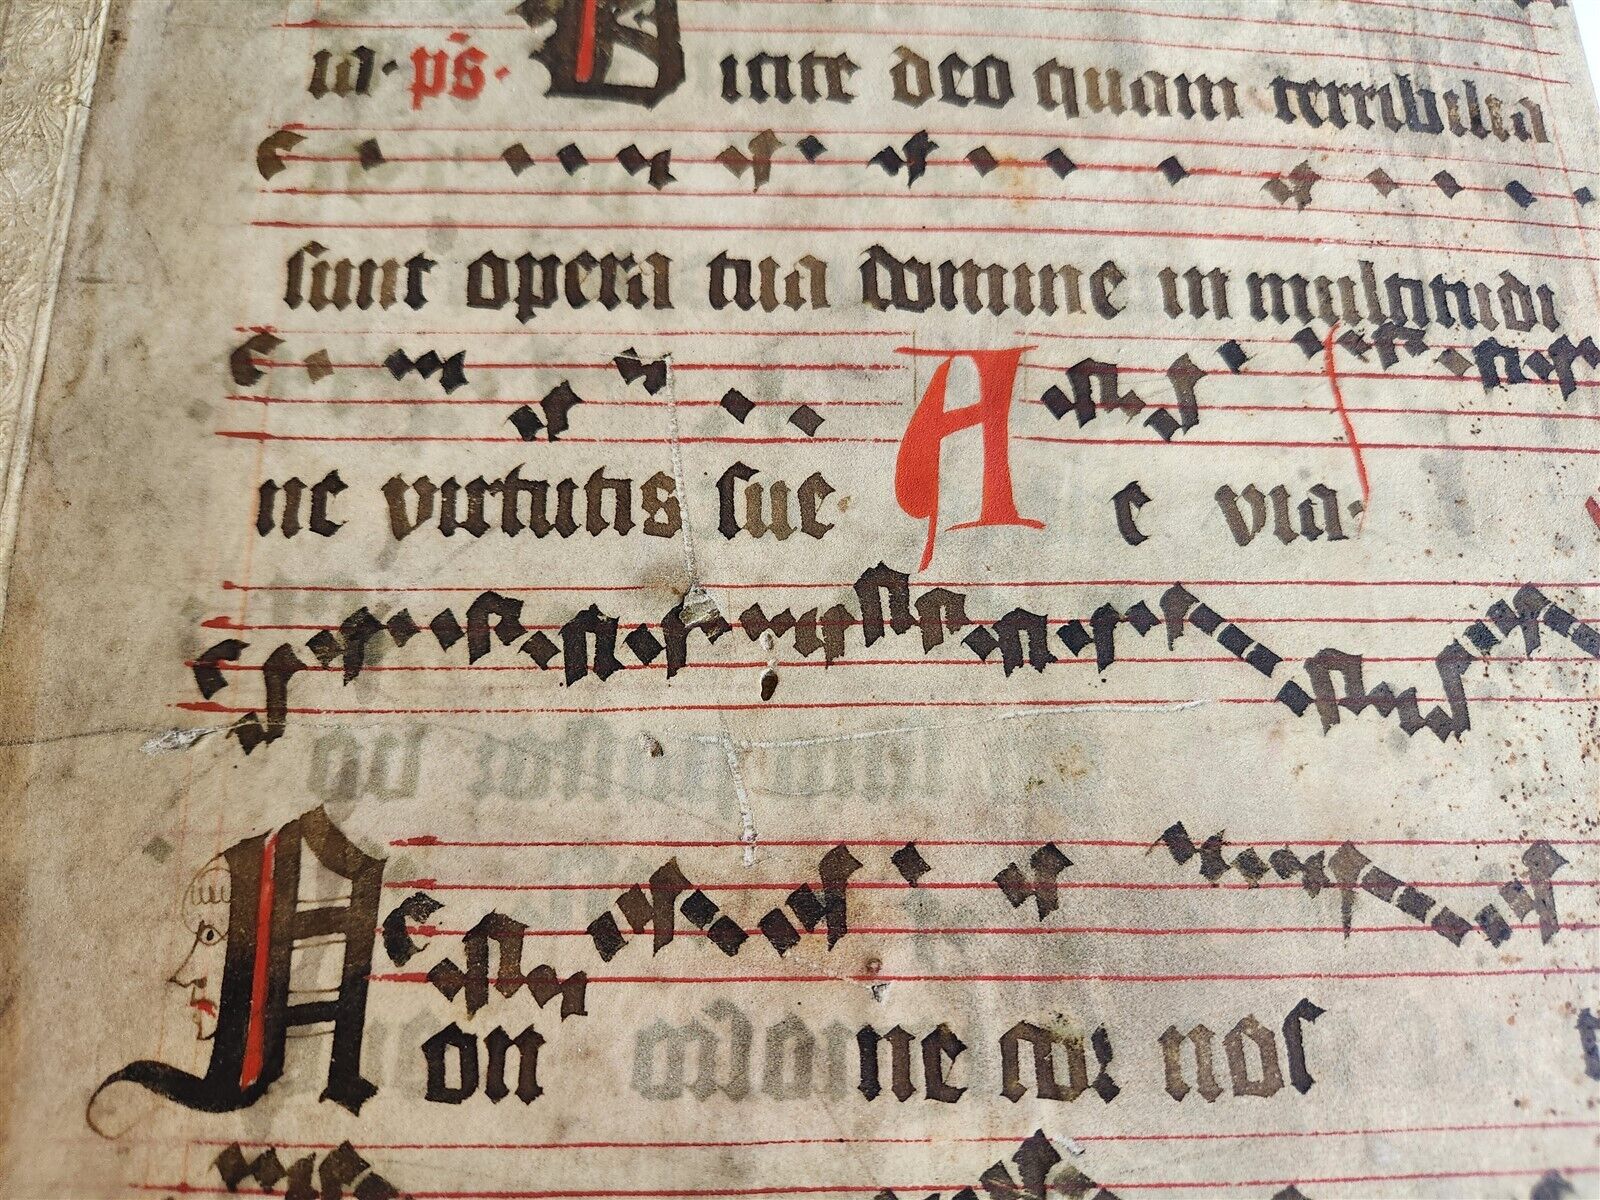 ia. ps. Dicite deo quam terribilia
sunt opera tua domine in multitudi
ne virtutis sue. A e via.
Non ne cor nos